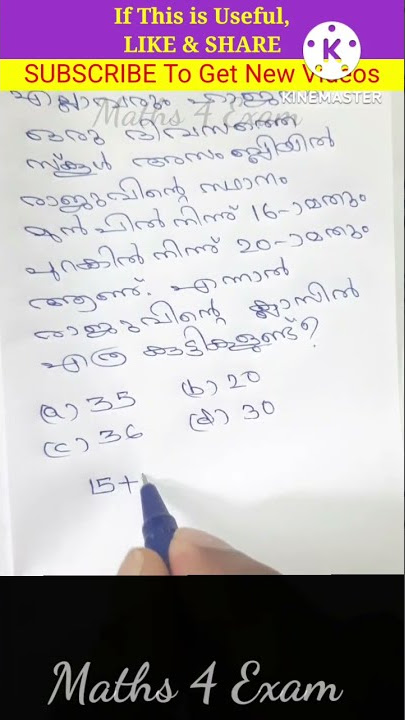 If This is Useful,
LIKE & SHARE
SUBSCRIBE To Get New Videos
K
KINEMASTER
Maths 4 Exam
ഒരു ദിവസത്തെ
സ്കൂൾ അസംബ്ലിയിൽ
രാജുവിന്റെ സ്ഥാനം
മുൻപിൽ നിന്ന് 16-ാമതും
പുറകിൽ നിന്ന് 20-ാമതും
ആണ്. എന്നാൽ
രാജുവിന്റെ ക്ലാസിൽ
എത്ര കുട്ടികളുണ്ട്?
(a) 35 (b) 20
(c) 36 (d) 30
15+
Maths 4 Exam